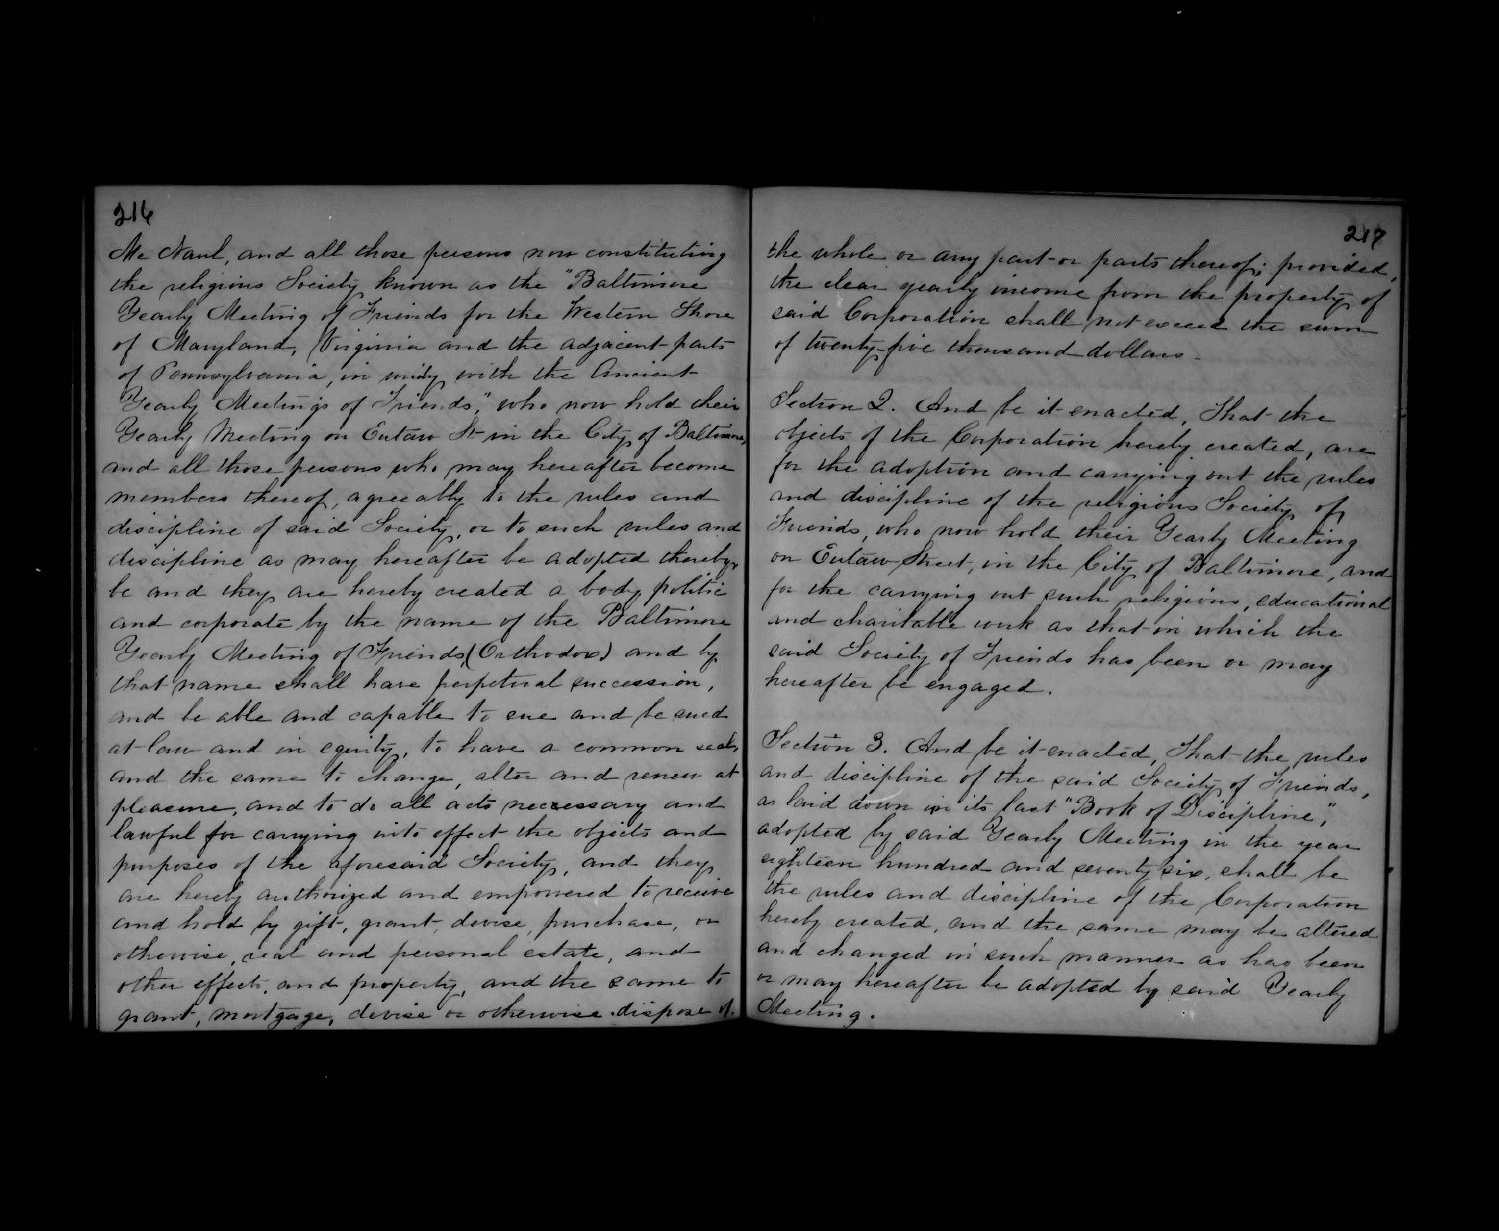 216
Mc Naul, and all those persons now constituting
the religious Society known as the "Baltimore
Yearly Meeting of Friends for the Western Shore
of Maryland, Virginia and the adjacent parts
of Pennsylvania, in unity with the Ancient
Yearly Meetings of Friends," who now hold their
Yearly Meeting on Eutaw St in the City of Baltimore,
and all those persons who may hereafter become
members thereof, agreeably to the rules and
discipline of said Society, or to such rules and
discipline as may hereafter be adopted thereby,
be and they are hereby created a body politic
and corporate by the name of the Baltimore
Yearly Meeting of Friends, (Orthodox) and by
that name shall have perpetual succession,
and be able and capable to sue and be sued
at law and in equity, to have a common seal,
and the same to change, alter and renew at
pleasure, and to do all acts necessary and
lawful for carrying into effect the objects and
purposes of the aforesaid Society, and they
are hereby authorized and empowered to receive
and hold by gift, grant, devise, purchase, or
otherwise, real and personal estate, and
other effects, and property, and the same to
grant, mortgage, devise or otherwise dispose of.
217
the whole or any part or parts thereof; provided,
the clear yearly income from the property of
said Corporation shall not exceed the sum
of twenty-five thousand dollars.
Section 2. And be it enacted, That the
objects of the Corporation hereby created, are
for the adoption and carrying out the rules
and discipline of the religious Society of
Friends, who now hold their Yearly Meeting
on Eutaw Street, in the City of Baltimore, and
for the carrying out such religious, educational
and charitable work as that in which the
said Society of Friends has been or may
hereafter be engaged.
Section 3. And be it enacted, That the rules
and discipline of the said Society of Friends,
as laid down in its last "Book of Discipline",
adopted by said Yearly Meeting in the year
eighteen hundred and seventy six, shall be
the rules and discipline of the Corporation
hereby created, and the same may be altered
and changed in such manner as has been
or may hereafter be adopted by said Yearly
Meeting.